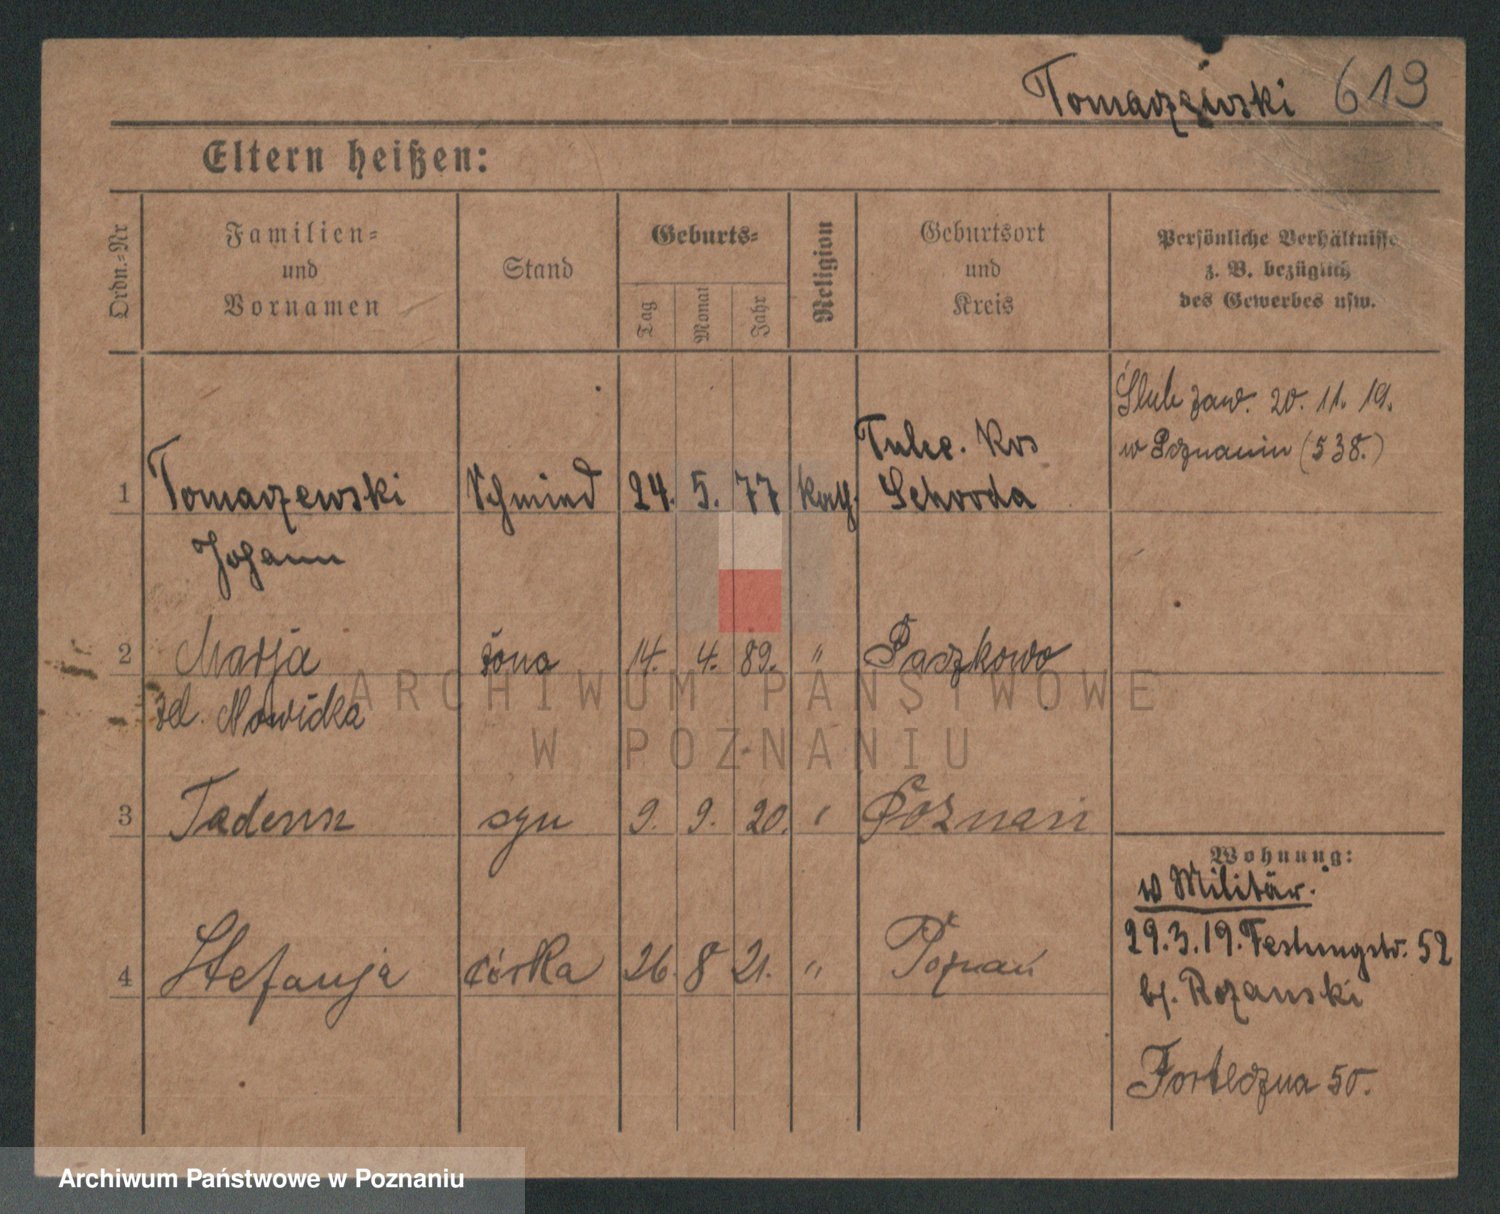 Tomaszewski 619
Eltern heißen:
Ordn.=Nr
Familien=
und
Vornamen
Stand
Geburts=
Tag
Monat
Jahr
Religion
Geburtsort
und
Kreis
Persönliche Verhältnisse
z. B. bezüglich
des Gewerbes usw.
Ślub zaw. 20. 11. 19.
w Poznaniu (538.)
1 Tomaszewski Schmied 24. 5. 77 kath. Tulce. Krs
Schroda
Johann
2 Marja żona 14. 4. 89. " Paczkowo
Nowicka
3 Tadeusz syn 9. 9. 20. Poznań
4 Stefanja córka 26. 8 21. " Poznań
Wohnung:
w Militär.
29.3.19. Festungstr. 52
b/. Rozanski
Forteczna 50.
ARCHIWUM PAŃSTWOWE
W POZNANIU
Archiwum Państwowe w Poznaniu